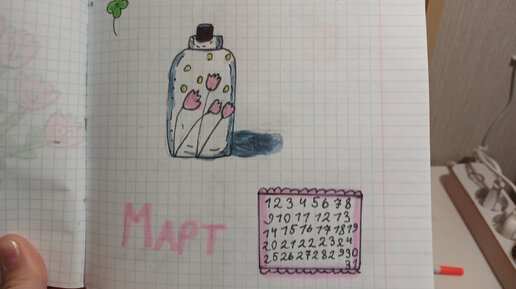 МАРТ
1 2 3 4 5 6 7 8
9 10 11 12 13
14 15 16 17 18 19
20 21 22 23 24
25 26 27 28 29 30
31